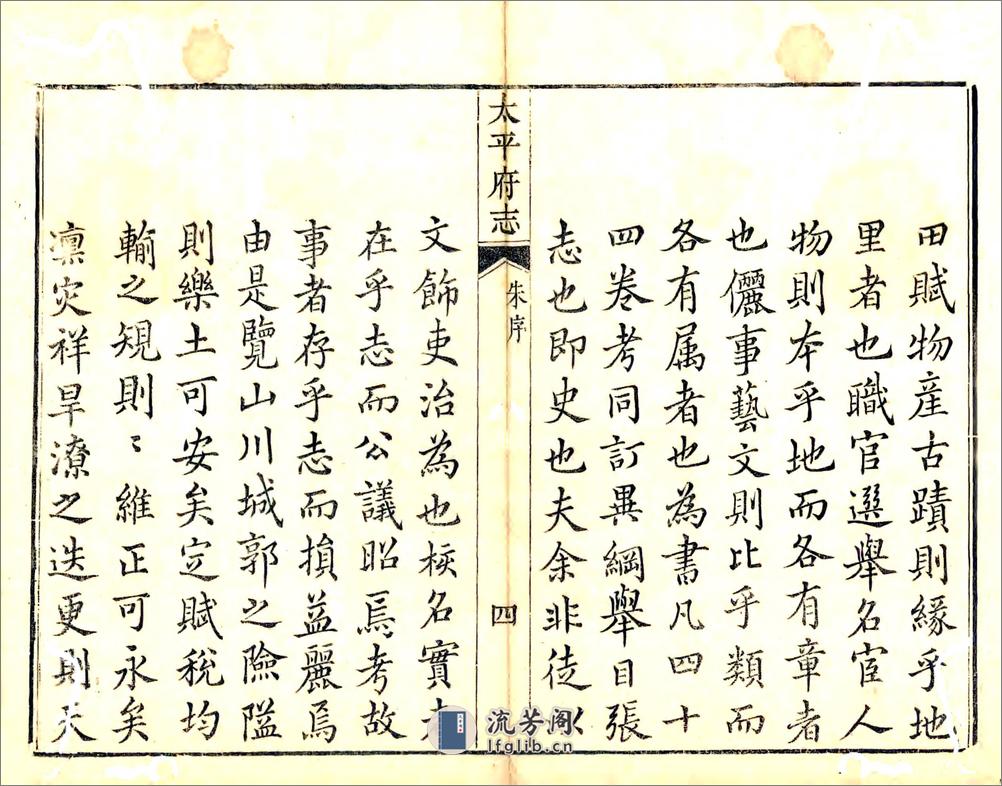 田賦物産古蹟則緣乎地
里者也職官選舉名宦人
物則本乎地而各有章者
也儷事藝文則比乎類而
各有属者也為書凡四十
四卷考同訂異綱舉目張
志也即史也夫余非徒以
太平府志
朱序
四
文飾吏治為也核名實
在乎志而公議昭焉考故
事者存乎志而損益麗焉
由是覽山川城郭之險隘
則樂土可安矣定賦稅均
輸之規則〻維正可永矣
凜灾祥旱潦之迭更則天
流芳阁
lfglib.cn